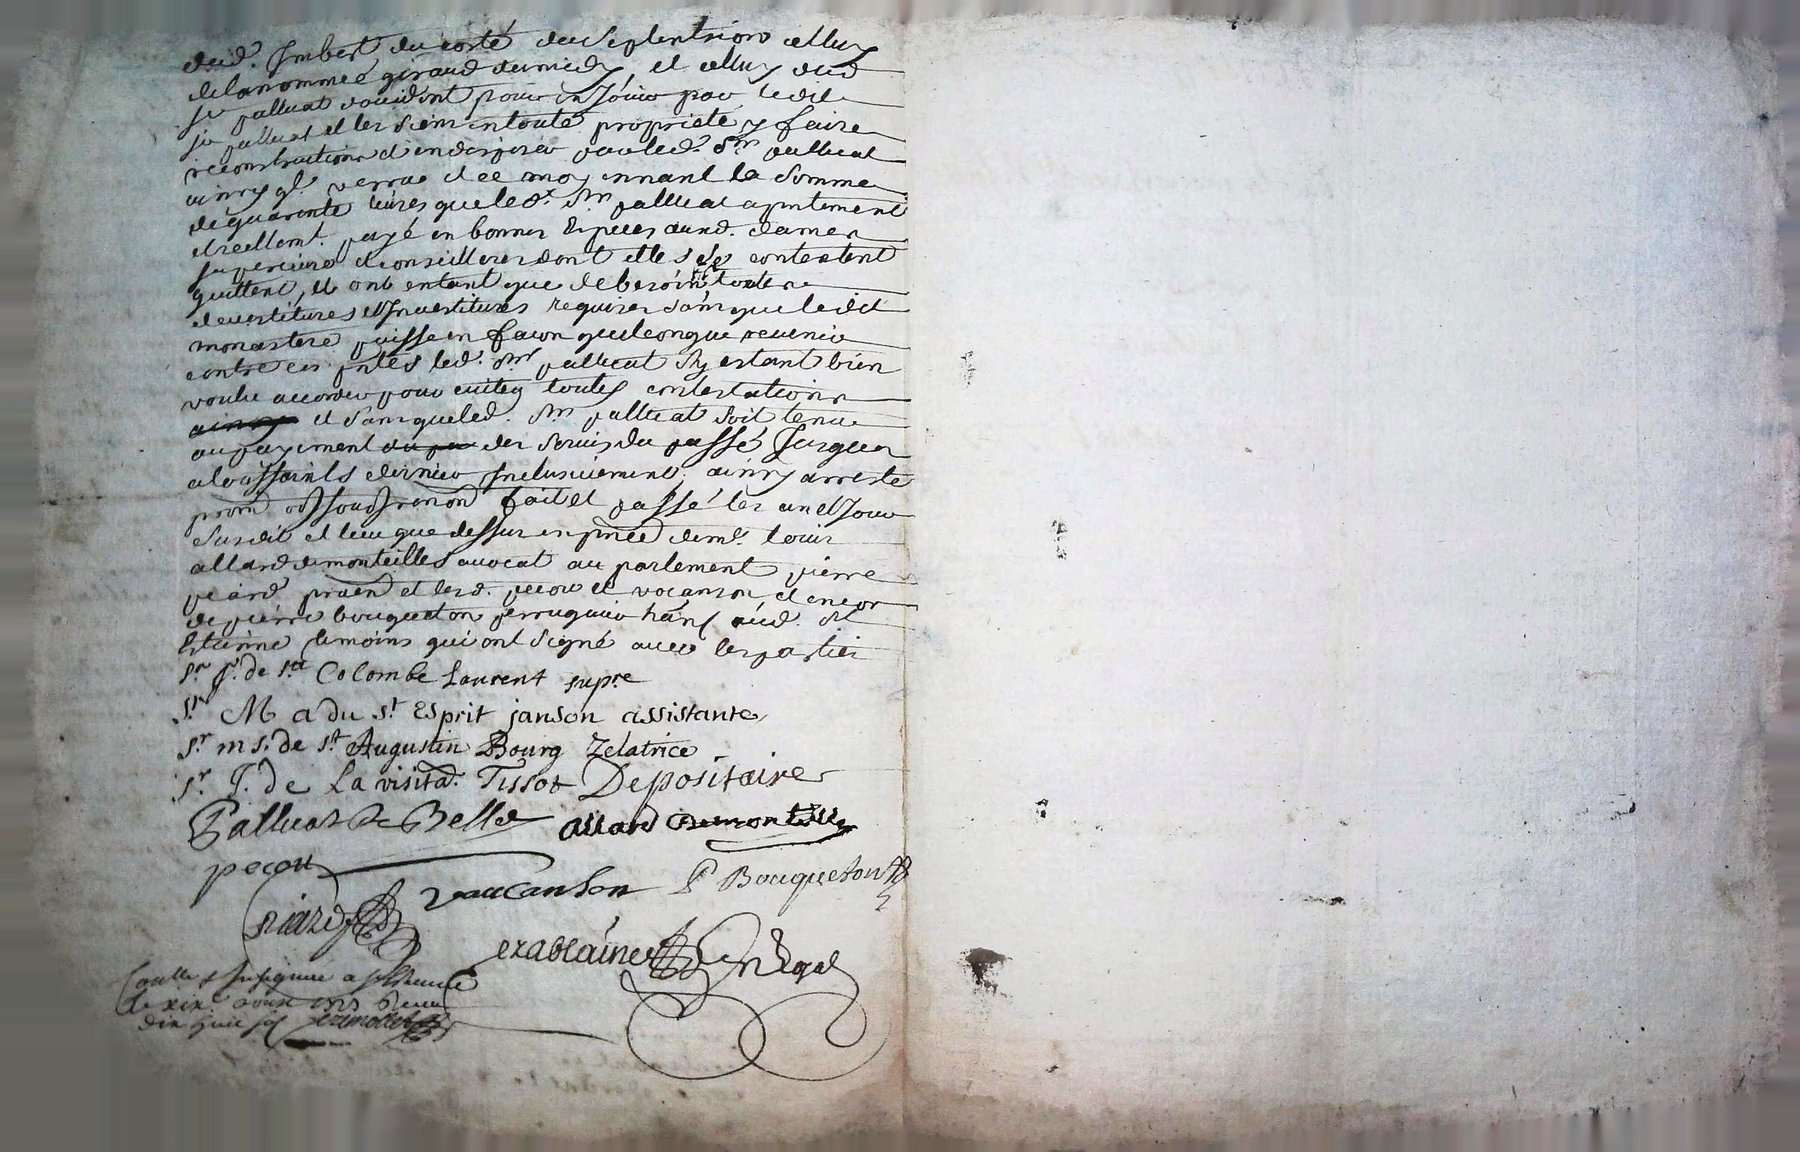 dud. Imbert du costé du Septentrion celluy
de la nommeé giraud du midy, et celluy dud
sr palluat doccident pour en Jouir par ledit
sr palluat et les siens en toute proprieté y faire
reconstructions et en disposer par led. Sr palluat
ainsy ql verra et ce moyennant la somme
de quarante livres que led. Sr palluat a
et reellemt. payé en bonnes Especes auxd. dames
superieure et conseilleres dont elles se contentent
quittent, et ont entant que de besoin toutes
devestitures et Investitures requises sans que ledit
monastere puisse en façon quelconque revenir
contre ces pntes led. Sr palluat sy estant bien
voulu accorder pour eviter toutes contestations
et sans que led. Sr palluat soit tenu
au payement des servis du passé Jusques
a la toussaints dernier Inclusivement, ainsy arresté
fait et passé les an et Jour
susdit et lieu que dessus en pnce de me. louis
allard de monteilles avocat au parlement pierre
peard pratn et lesd. pecou et vocanson et encor
de pierre bouqueton perruquier hant aud. St
Estienne temoins qui ont signé avec les parties
Sr J. de Ste Colombe Laurent supre
Sr M a du St Esprit janson assistante
Sr m s. de St Augustin Bourg Zélatrice
Sr J. de La visita. Tissot Depositaire
Palluat De Besse allard Demonteilles
pecou
vaucanson P Bouqueton
piard
Controllé et Insinué a St Etienne
le xixe
dix huit sols